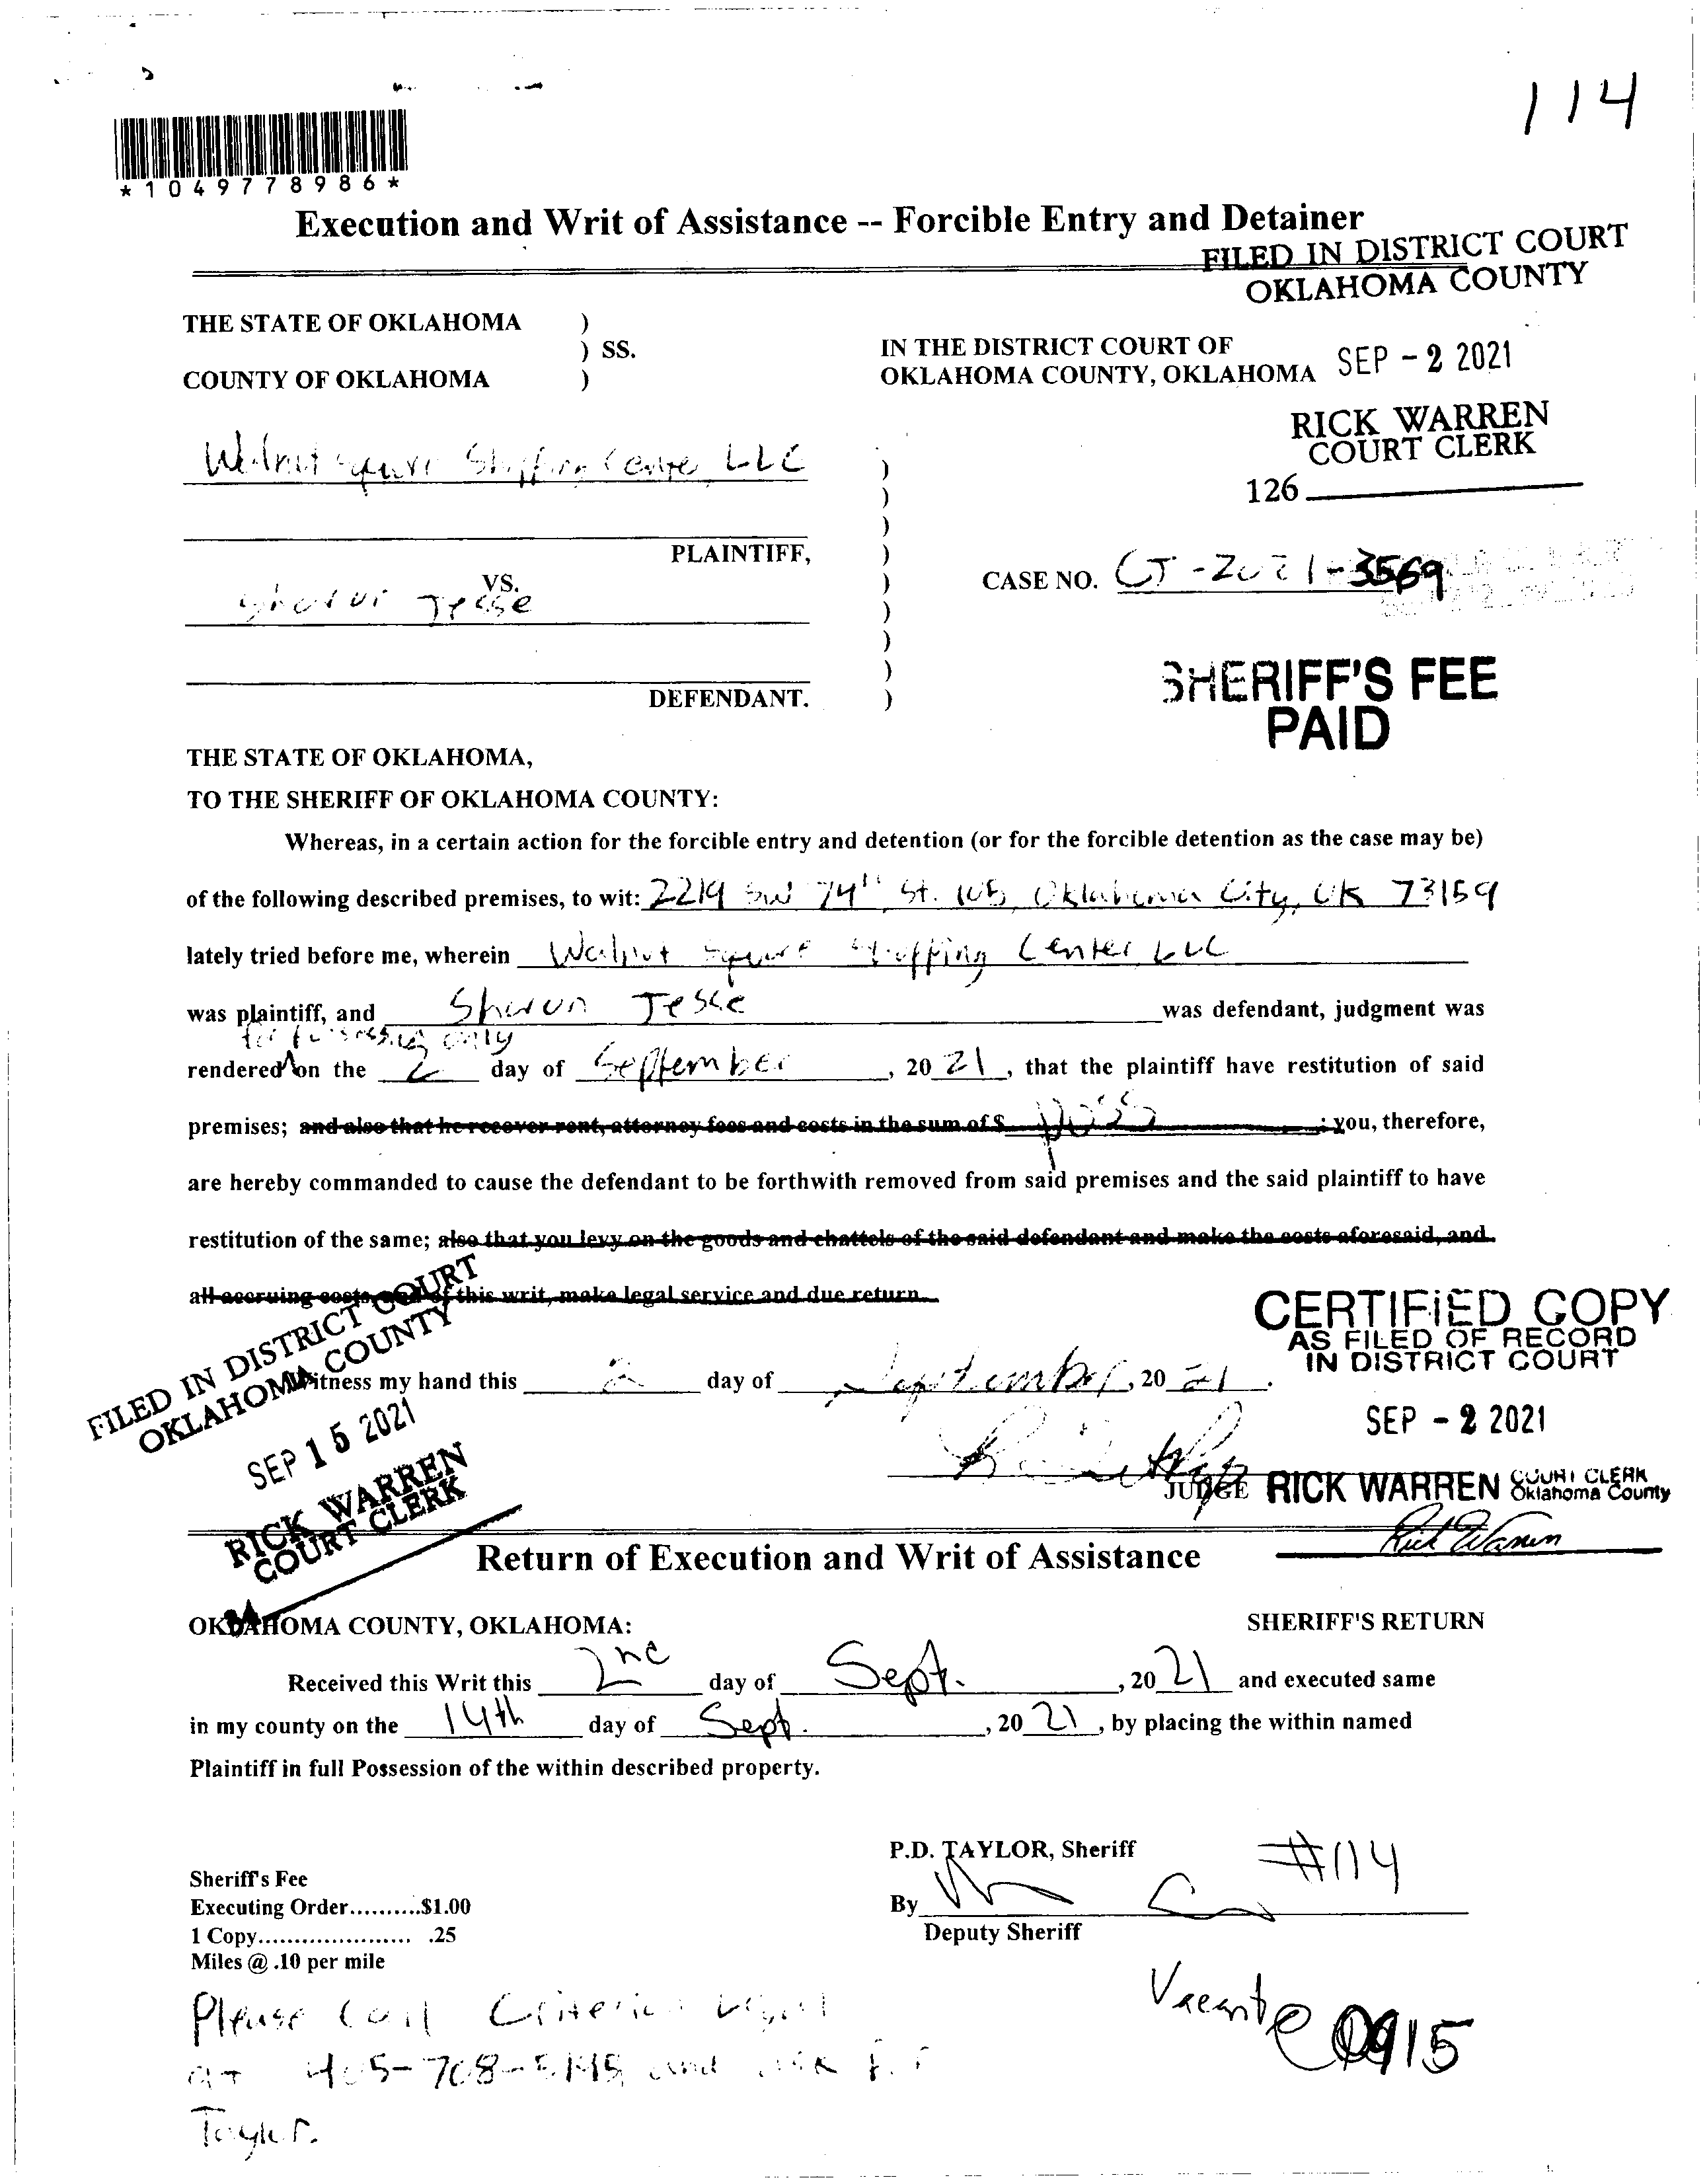 114
*1049778986*
Execution and Writ of Assistance -- Forcible Entry and Detainer
FILED IN DISTRICT COURT
OKLAHOMA COUNTY
THE STATE OF OKLAHOMA )
) SS.
COUNTY OF OKLAHOMA )
IN THE DISTRICT COURT OF
OKLAHOMA COUNTY, OKLAHOMA
SEP - 2 2021
RICK WARREN
COURT CLERK
126
Walnut Square Shopping Center, LLC
PLAINTIFF,
VS.
Sharon Jesse
DEFENDANT.
CASE NO. CJ-2021-3569
SHERIFF'S FEE
PAID
THE STATE OF OKLAHOMA,
TO THE SHERIFF OF OKLAHOMA COUNTY:
Whereas, in a certain action for the forcible entry and detention (or for the forcible detention as the case may be)
of the following described premises, to wit: 2219 SW 74th St. 105, Oklahoma City, OK 73159
lately tried before me, wherein Walnut Square Shopping Center, LLC
was plaintiff, and Sharon Jesse was defendant, judgment was
for possession only
rendered on the 2 day of September, 2021, that the plaintiff have restitution of said
premises; and also that he recover rent, attorney fees and costs in the sum of $ ; you, therefore,
are hereby commanded to cause the defendant to be forthwith removed from said premises and the said plaintiff to have
restitution of the same; also that you levy on the goods and chattels of the said defendant and make the costs aforesaid, and
all accruing costs, and of this writ, make legal service and due return.
FILED IN DISTRICT COURT
OKLAHOMA COUNTY
SEP 15 2021
RICK WARREN
COURT CLERK
34
Witness my hand this 2 day of September, 2021.
JUDGE
CERTIFIED COPY
AS FILED OF RECORD
IN DISTRICT COURT
SEP - 2 2021
RICK WARREN COURT CLERK
Oklahoma County
Rick Warren
Return of Execution and Writ of Assistance
OKLAHOMA COUNTY, OKLAHOMA: SHERIFF'S RETURN
Received this Writ this 2nd day of Sept., 2021 and executed same
in my county on the 14th day of Sept., 2021, by placing the within named
Plaintiff in full Possession of the within described property.
P.D. TAYLOR, Sheriff
#114
By
Deputy Sheriff
Sheriff's Fee
Executing Order..........$1.00
1 Copy..................... .25
Miles @ .10 per mile
Vacant @ 0915
Please Call Criterion Legal
at 405-708- and ask for
Taylor.